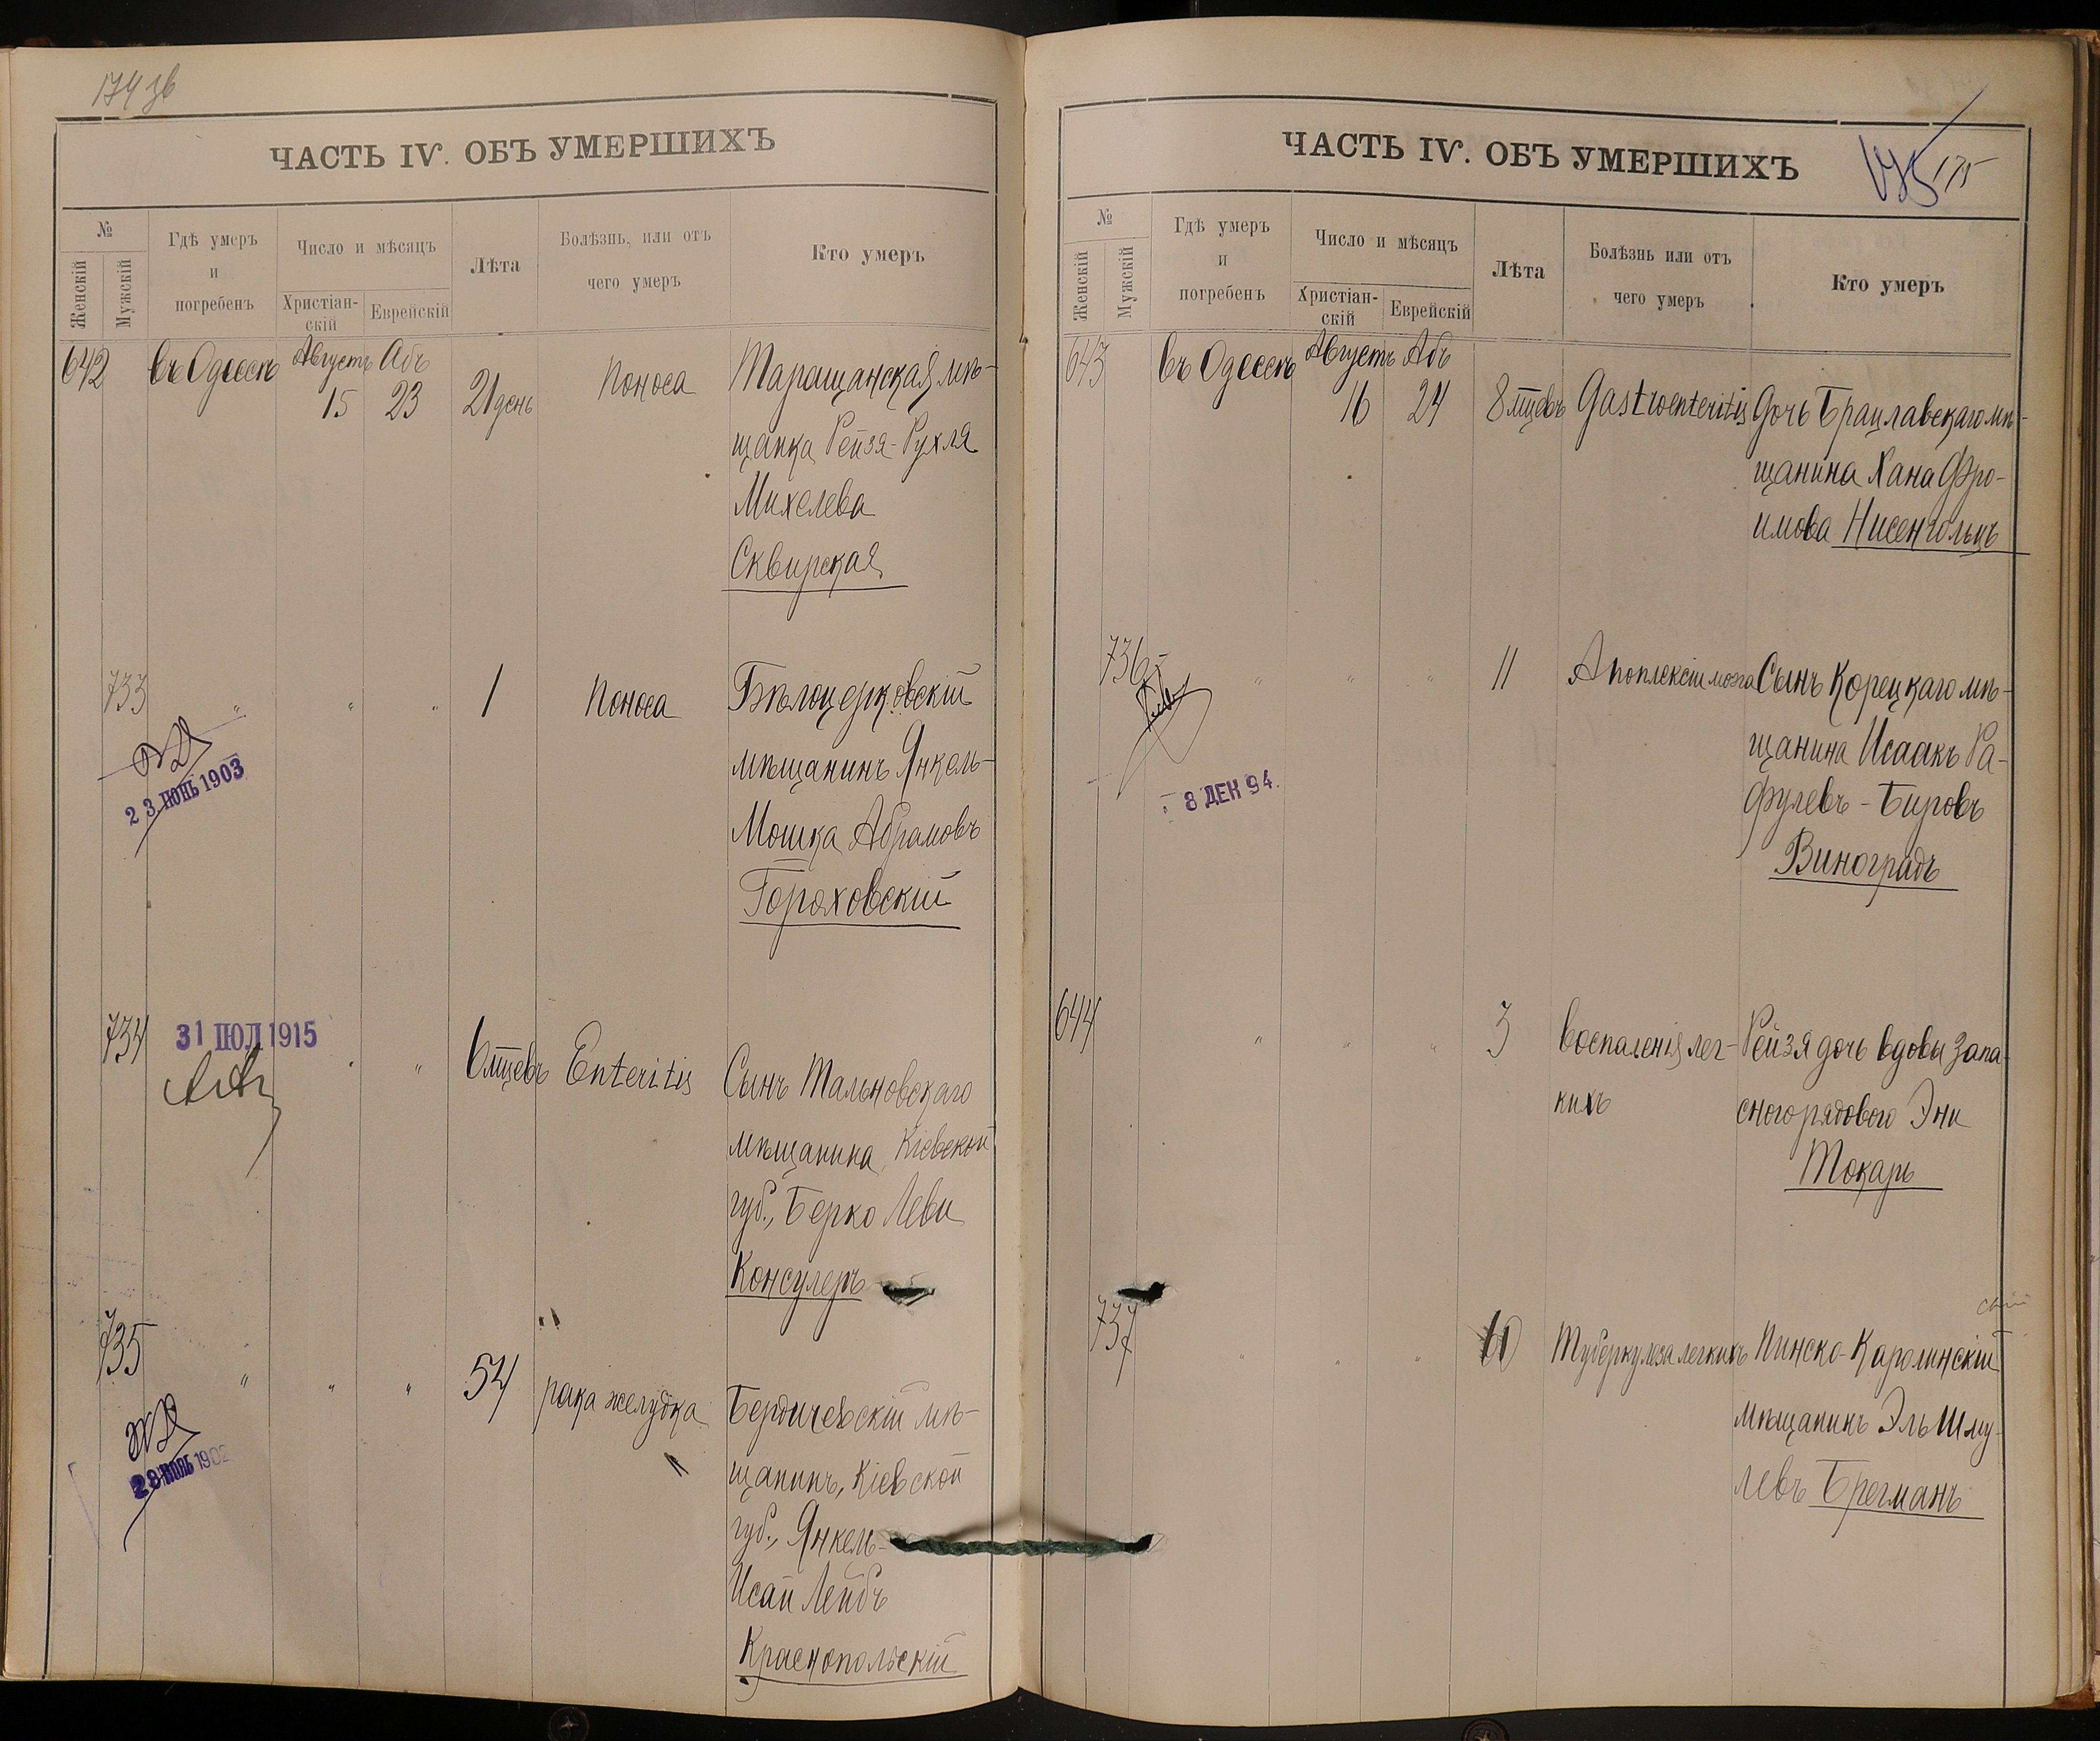 174 зв
ЧАСТЬ IV. ОБЪ УМЕРШИХЪ
№
Женскій
Мужскій
Гдѣ умеръ
и
погребенъ
Число и мѣсяцъ
Христіан-
скій
Еврейскій
Лѣта
Болѣзнь, или отъ
чего умеръ
Кто умеръ
642 въ Одессѣ Августъ Абъ
15 23 21 день Поноса Таращанская мѣ-
щанка Рейзя-Рухля
Михелева
Сквирская
733 " " " 1 Поноса Бѣлоцерковскій
мѣщанинъ Янкель-
Мошка Абрамовъ
Гороховскій
23 ІЮНЬ 1903
734 " " 6 мцевъ Enteritis Сынъ Тальновскаго
31 ІЮЛ 1915
мѣщанина, Кіевской
губ., Берко Леви
Консулеръ
735 " " " 54 рака желудка Бердичевскій мѣ-
щанинъ, Кіевской
губ., Янкель-
Исай Лейбъ
Краснопольскій
28 1902
ЧАСТЬ IV. ОБЪ УМЕРШИХЪ
175 175
№
Женскій
Мужскій
Гдѣ умеръ
и
погребенъ
Число и мѣсяцъ
Христіан-
скій
Еврейскій
Лѣта
Болѣзнь или отъ
чего умеръ
Кто умеръ
643 въ Одессѣ Августъ Абъ
16 24 8 мцевъ Gastroenteritis Дочь Брацлавскаго мѣ-
щанина Хана Фро-
имова Нисенгольцъ
736 " " " 11 Апоплексіи мозга Сынъ Корецкаго мѣ-
щанина Исаакъ Ра-
фулевъ-Бировъ
Виноградъ
8 ДЕК 94.
644 " " " 3 Воспаленія лег-
кихъ
Рейзя дочь вдовы запа-
сного рядового Эни
Токарь
737 " " " Туберкулеза легкихъ Пинско-Каролинскій
мѣщанинъ Эль Шму-
левъ Брегманъ